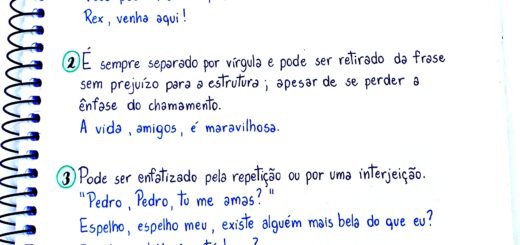 Rex, venha aqui!
2 É sempre separado por vírgula e pode ser retirado da frase
sem prejuízo para a estrutura, apesar de se perder a
ênfase do chamamento.
A vida, amigos, é maravilhosa.
3 Pode ser enfatizado pela repetição ou por uma interjeição.
"Pedro, Pedro, tu me amas?"
Espelho, espelho meu, existe alguém mais bela do que eu?